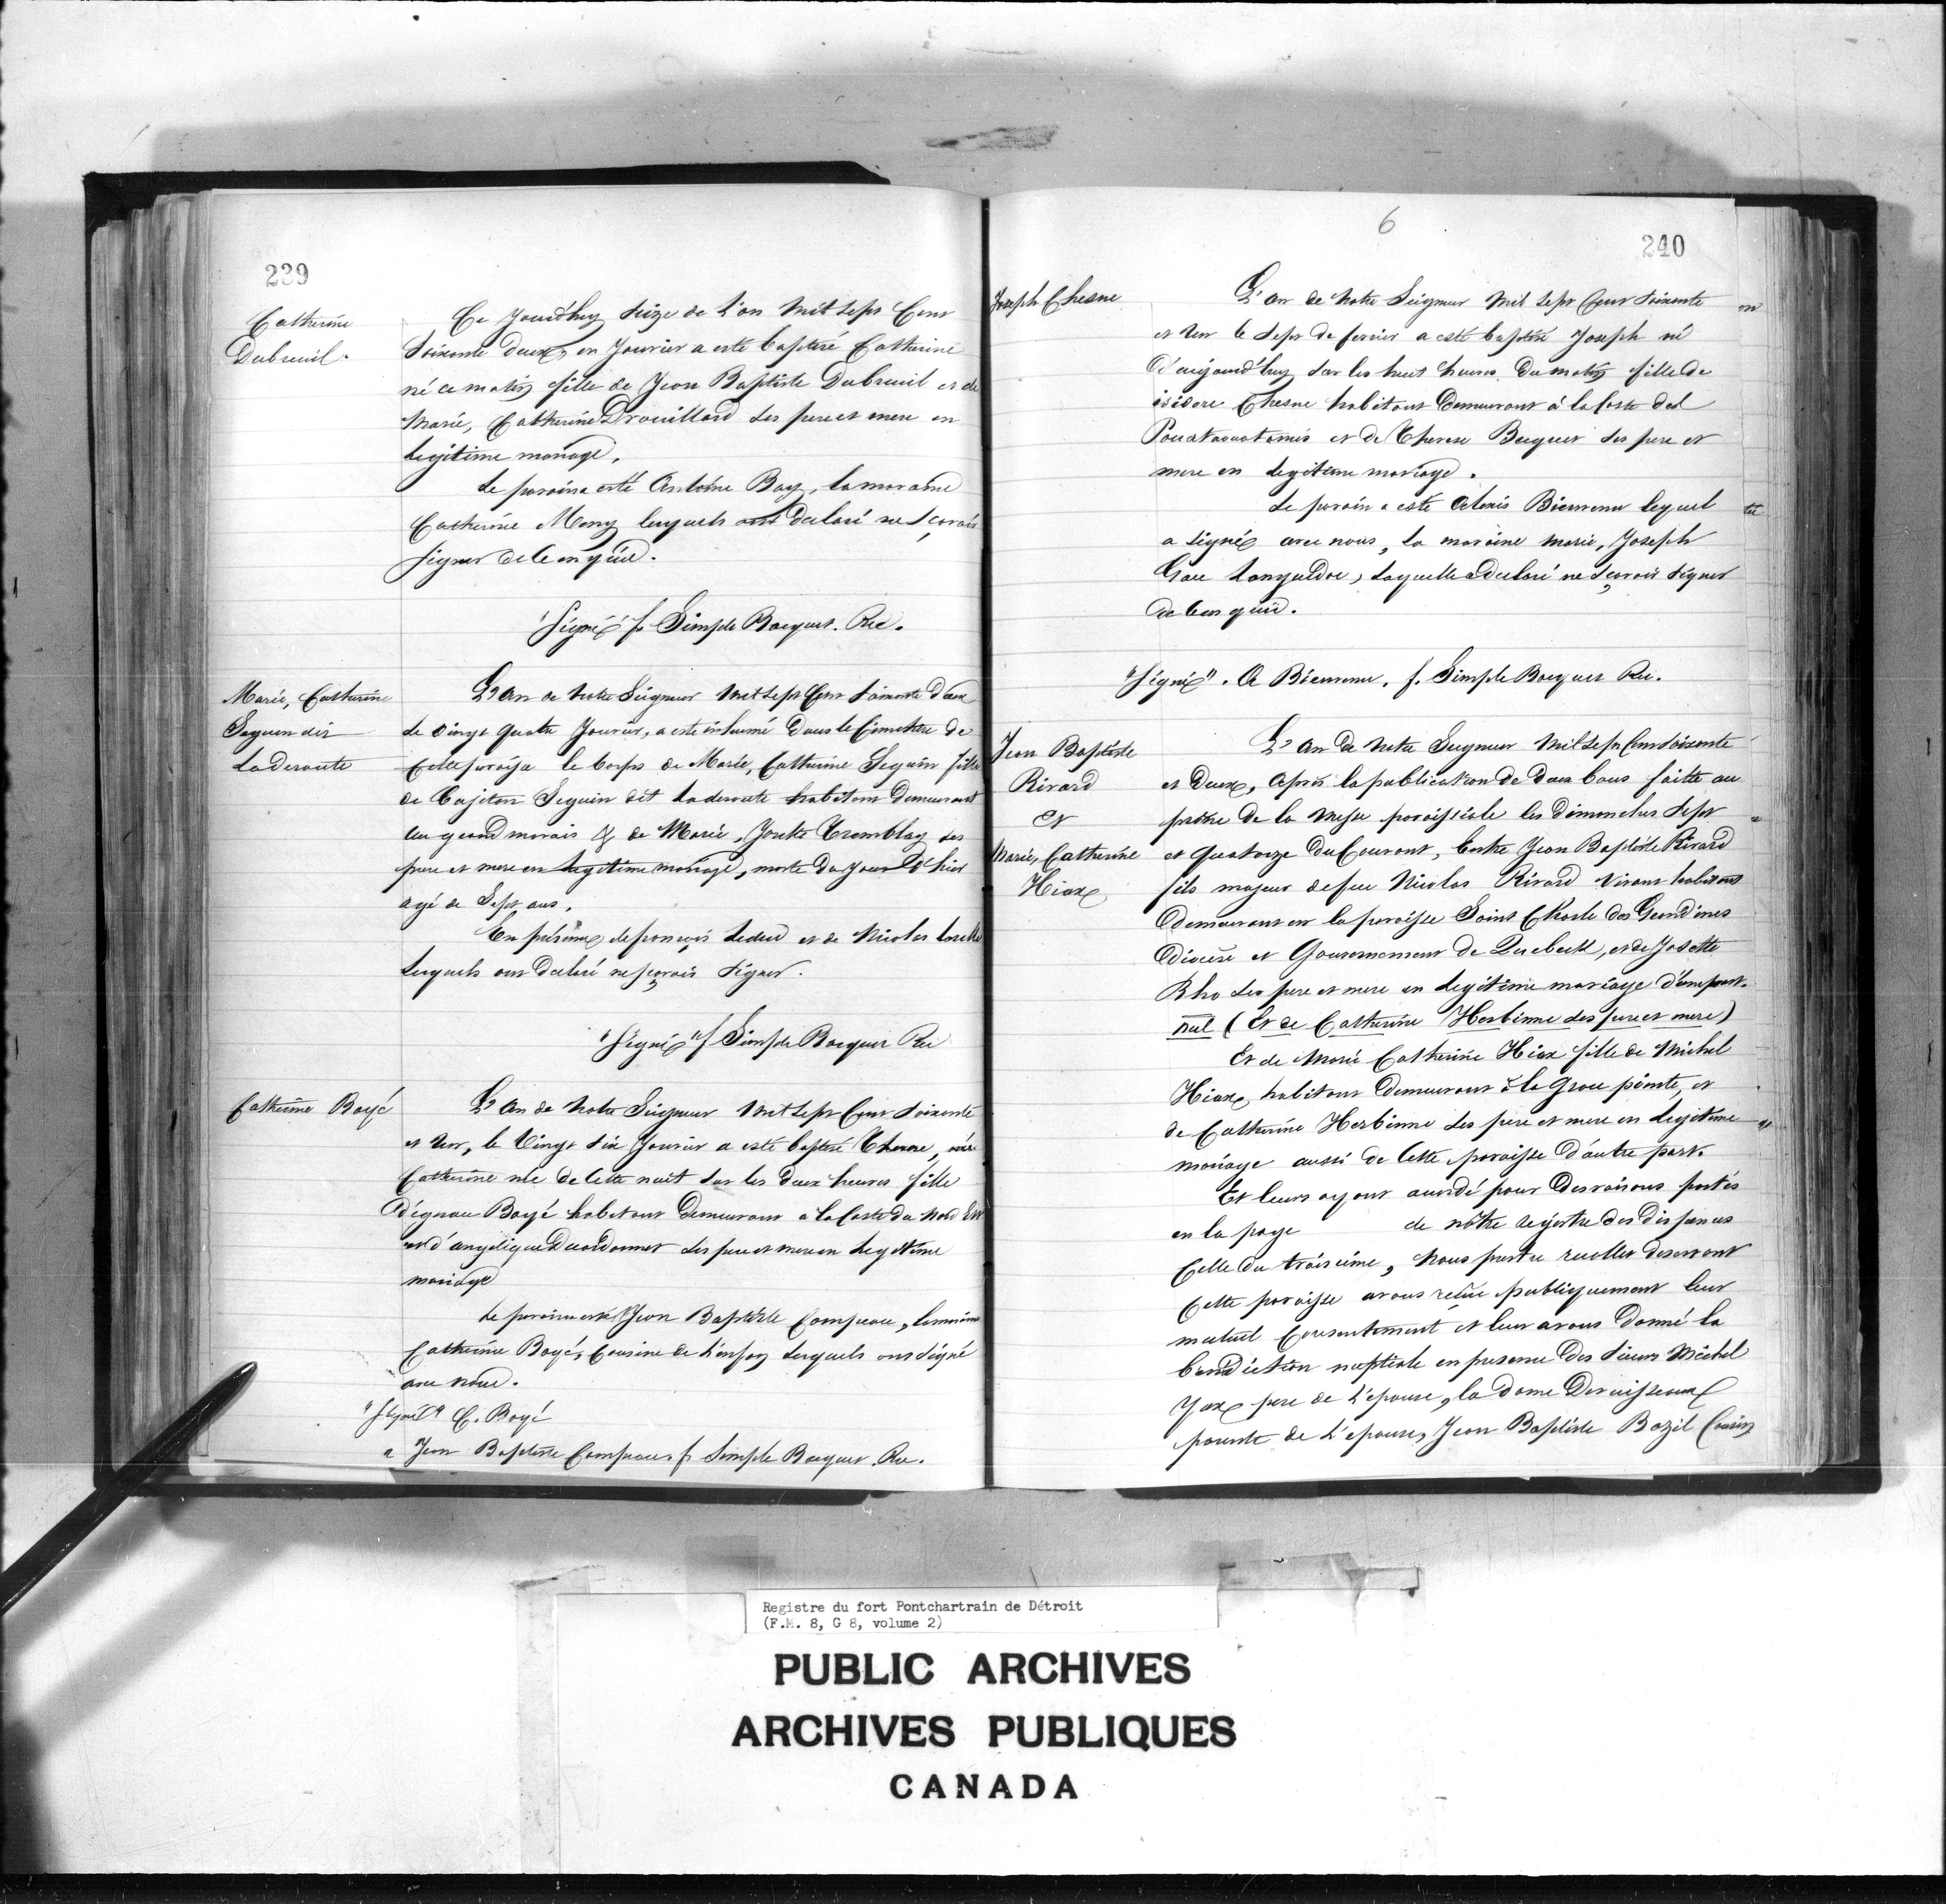 239
Catherine
Dubreuil.
Ce Jourd'huy Seize de L'an Mil Sept Cent
Soixante deux, en Janvier a esté baptisé Catherine
né ce matin fille de Jean Baptiste Dubreuil et de
Marie, Catherine Drouillard ses pere et mere en
legitime mariage.
Le paroin a esté Antoine Bay, la maraine
Catherine Meny lesquels ont declaré ne sçavoir
signer de ce enquis.
"Signé" f. Simple Bocquet. Rec.
Marie, Catherine
Seguin dit
Laderoute
L'An de Notre Seigneur Mil Sept Cent Soixante Deux
le vingt quatre Janvier, a esté inhumé Dans le Cimetiere de
Cette paroisse le Corps de Marie, Catherine Seguin fille
de Cajetan Seguin dit Laderoute habitant Demeurant
au grand marais & de Marie, Josette Tremblay ses
pere et mere en legitime mariage, morte du jour d'hier
agé de Sept ans.
En présence de françois Leduc et de Nicolas
lesquels ont declaré ne sçavoir signer.
"Signé" f Simple Bocquet Rec
Catherine Boyé
L'An de Notre Seigneur Mil Sept Cent Soixante
et un, le Vingt Six Janvier a esté baptisé Therese,
Catherine née de Cette nuit sur les deux heures fille
d'ignace Boyé habitant Demeurant a la Coste du Nord Est
et d'angelique ses pere et mere en legitime
mariage
Le paroin a esté Jean Baptiste Campeau, la maraine
Catherine Boyé, Cousine de L'enfan lesquels ont signé
avec nous.
"Signé" C. Boyé
" Jean Baptiste Campeau. f. Simple Bocquet. Rec.
6
240
Joseph Chesne
L'an de Notre Seigneur Mil Sept Cent Soixante
et un le Sept de fevrier a esté baptisé Joseph né
D'aujourd'huy sur les huit heures du matin fille de
isidore Chesne habitant Demeurant à la Coste des
Pouatouatamis et de Therese Becquet ses pere et
mere en legitime mariage.
Le paroin a esté Alexis Bienvenu lequel
a signé avec nous, la maraine Marie, Joseph
Languedoc, laquelle a declaré ne sçavoir signer
de ce enquis.
"Signé". A Bienvenu. f. Simple Bocquet Rec.
Jean Baptiste
Rivard
et
Marie, Catherine
Hiax
L'An De Notre Seigneur Mil Sept Cent Soixante
et Deux, Après la publication de deux bans faitte au
prône de la Messe paroissiale les dimanches Sept
et Quatorze du Courant, Entre Jean Baptiste Rivard
fils majeur de feu Nicolas Rivard vivant habitant
demeurant en la paroisse Saint Charle des Grondines
Diocèse et Gouvernement de Quebeck, et de Josette
Rho ses pere et mere en legitime mariage d'unepart.
nul (Et de Catherine Herbinne ses pere et mere)
Et de Marie Catherine Hiax fille de Michel
Hiax habitant Demeurant à la Grosse pointe, et
de Catherine Herbinne ses pere et mere en legitime
mariage aussi de Cette paroisse d'autre part.
Et leurs ayant accordé pour Des raisons portés
en la page de nôtre registre des dispences
Celle du troisième, Nous prestre recollet desservant
Cette paroisse avons reçu publiquement leur
mutuel Consentement et leur avons Donné la
benediction nuptiale en presence Des Sieurs Michel
Yax pere de L'epouse, la Dame Deruisseaux
parente de L'epouse, Jean Baptiste Bazil Cousin
Registre du fort Pontchartrain de Détroit
(F.M. 8, G 8, volume 2)
PUBLIC ARCHIVES
ARCHIVES PUBLIQUES
CANADA